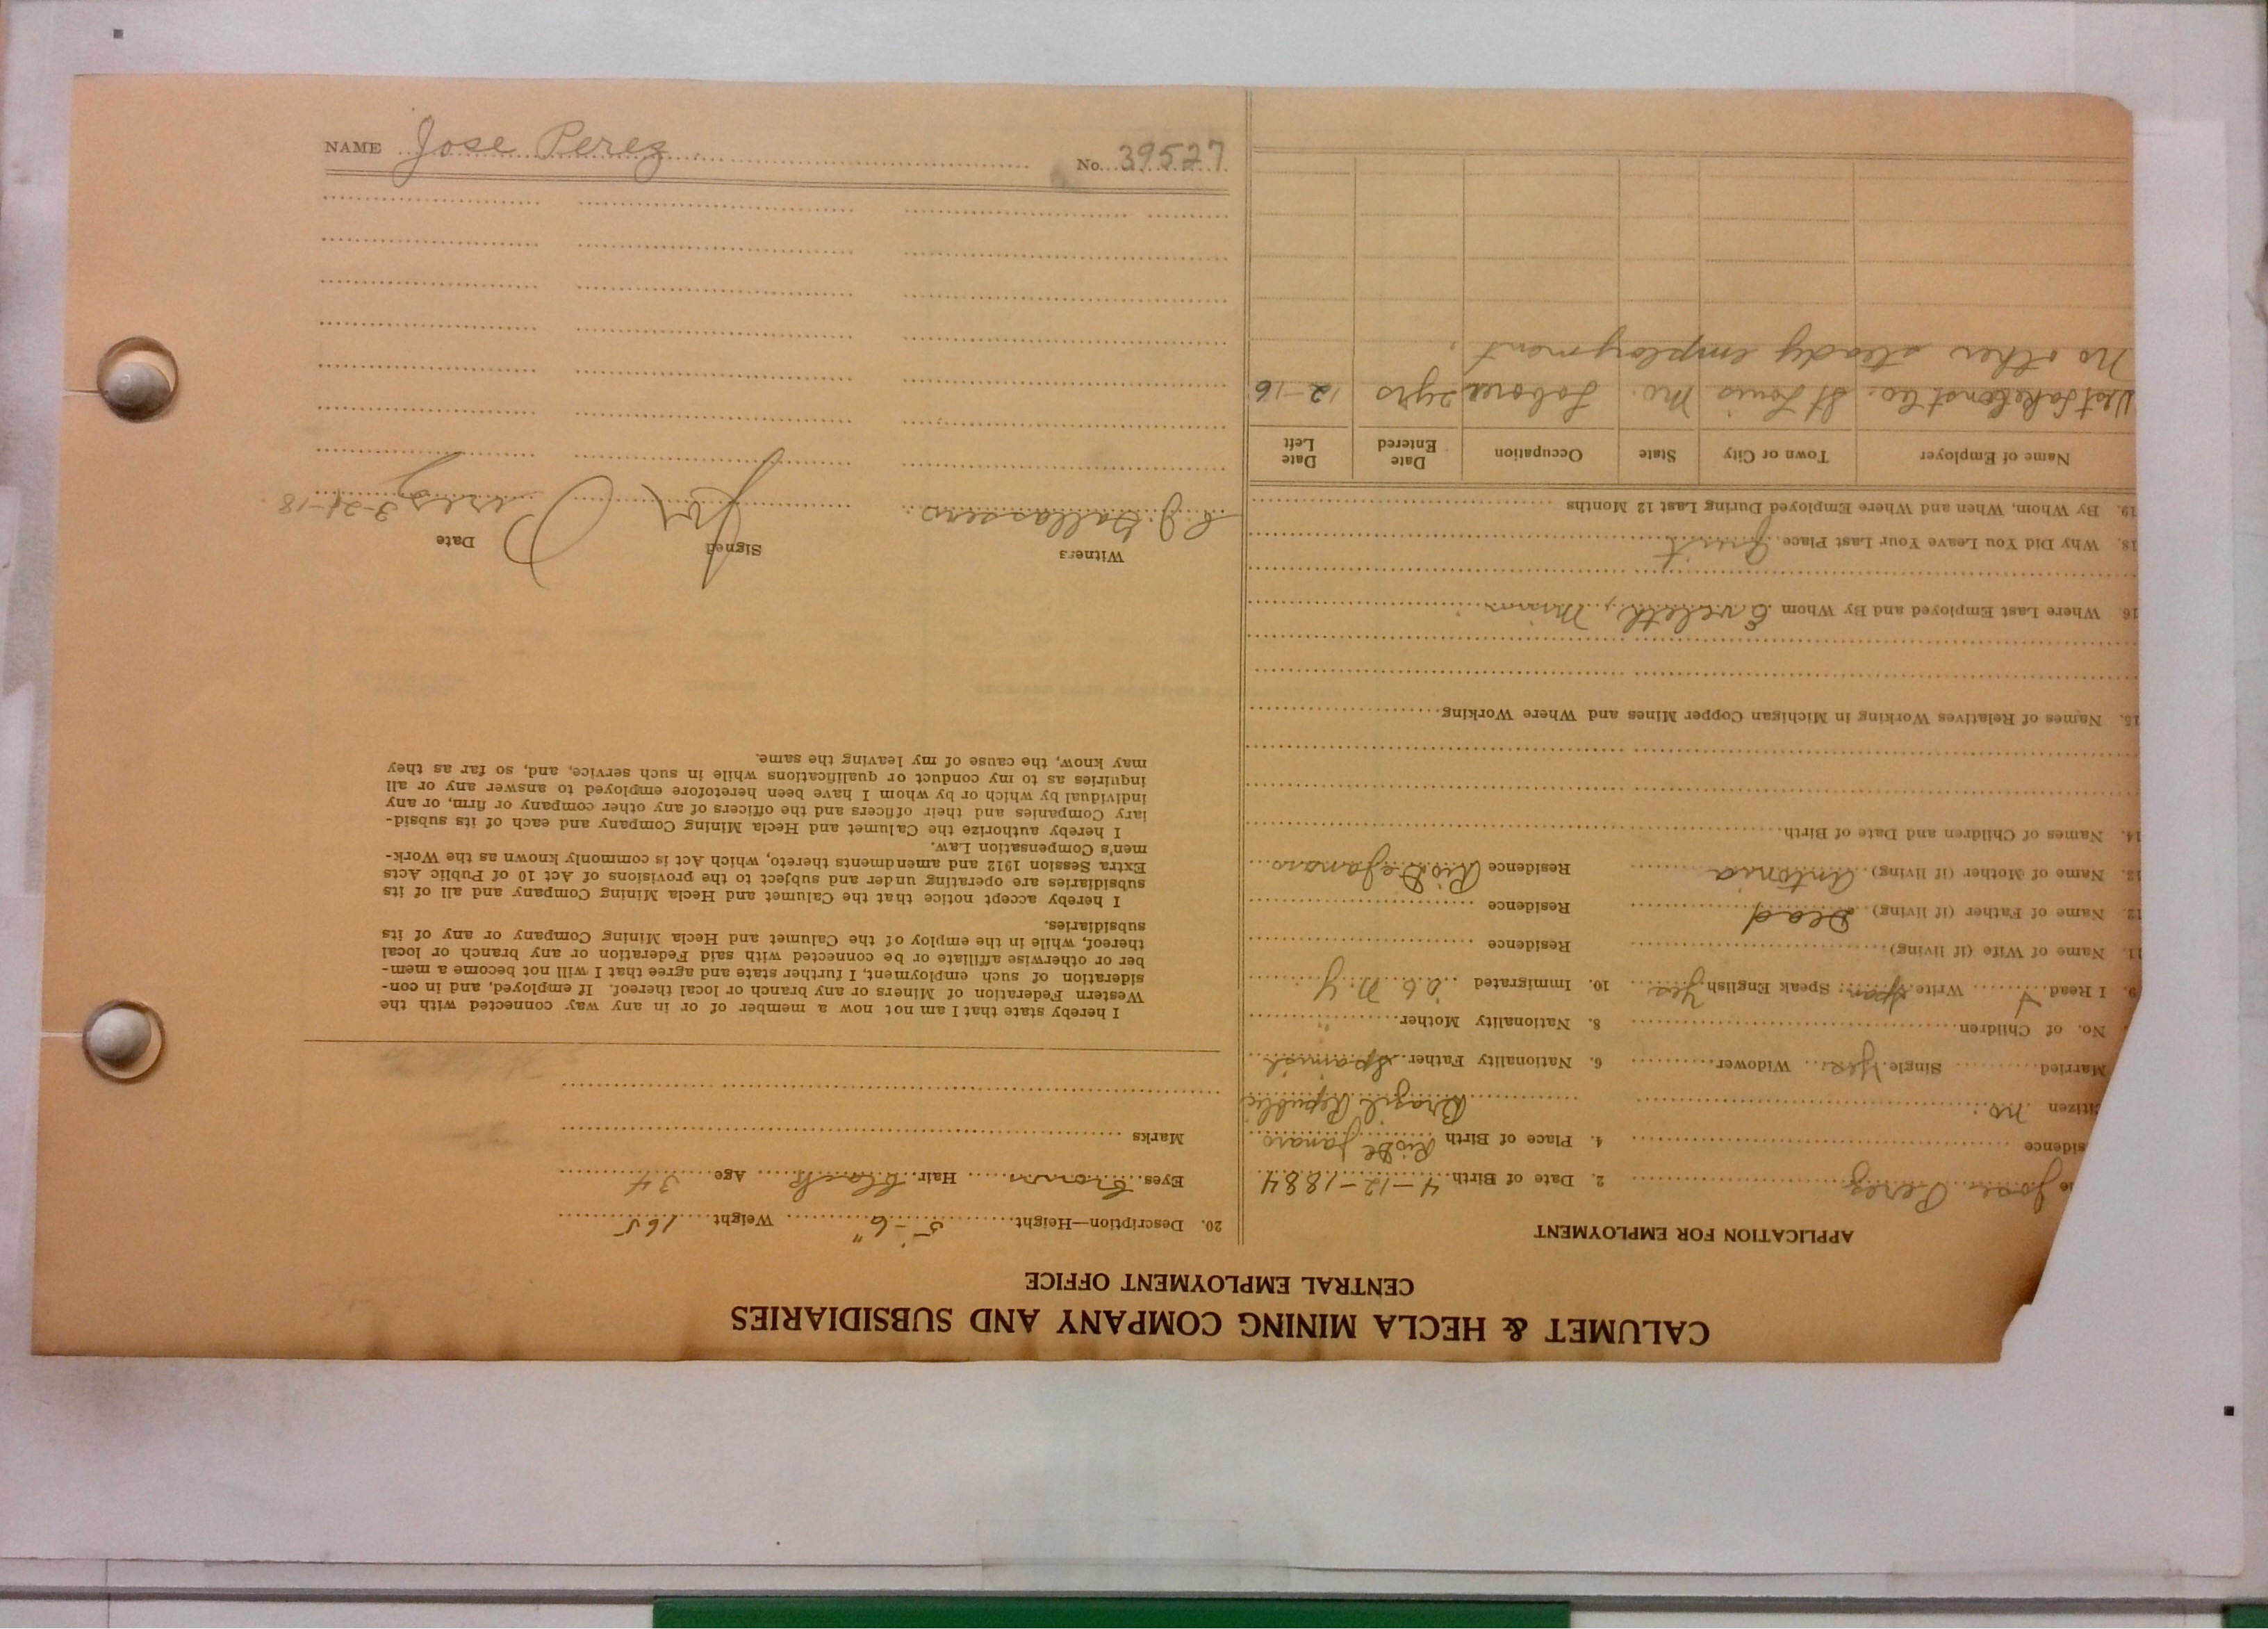 NAME Jose Perez No. 39527
CALUMET & HECLA MINING COMPANY AND SUBSIDIARIES
CENTRAL EMPLOYMENT OFFICE
APPLICATION FOR EMPLOYMENT
Jose Perez 2. Date of Birth 4-12-1884
sidence 4. Place of Birth Rio De Janaro
itizen no. Brazil Republic
Married Single Yes. Widower 6. Nationality Father Spanish
No. of Children 8. Nationality Mother "
9. I Read Write Span Speak English Yes 10. Immigrated N.Y
11. Name of Wife (if living) Residence
12. Name of Father (if living) Dead Residence
12. Name of Mother (if living) Antonia Residence Rio De Janaro
14. Names of Children and Date of Birth
15. Names of Relatives Working in Michigan Copper Mines and Where Working
16. Where Last Employed and By Whom Eveleth, Minn
18. Why Did You Leave Your Last Place Quit
19. By Whom, When and Where Employed During Last 12 Months
Name of Employer Town or City State Occupation Date Entered Date Left
Const Co. St Louis Mo. Laborer 2yrs 12-16
No other steady employment.
20. Description—Height 5'-6" Weight 165
Eyes Brown Hair black Age 34
Marks
I hereby state that I am not now a member of or in any way connected with the
Western Federation of Miners or any branch or local thereof. If employed, and in con-
sideration of such employment, I further state and agree that I will not become a mem-
ber or otherwise affiliate or be connected with said Federation or any branch or local
thereof, while in the employ of the Calumet and Hecla Mining Company or any of its
subsidiaries.
I hereby accept notice that the Calumet and Hecla Mining Company and all of its
subsidiaries are operating under and subject to the provisions of Act 10 of Public Acts
Extra Session 1912 and amendments thereto, which Act is commonly known as the Work-
men's Compensation Law.
I hereby authorize the Calumet and Hecla Mining Company and each of its subsid-
iary Companies and their officers and the officers of any other company or firm, or any
individual by which or by whom I have been heretofore employed to answer any or all
inquiries as to my conduct or qualifications while in such service, and, so far as they
may know, the cause of my leaving the same.
Witness Signed Date
Perez 3-21-18.